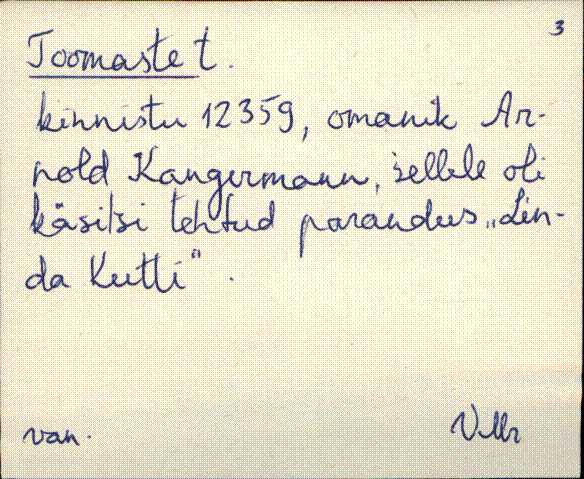 3
Toomaste t.
kinnistu 12359, omanik Ar-
nold Kangermann, sellele oli
käsitsi tehtud parandus „Lin-
da Kutti“.
van. VMr